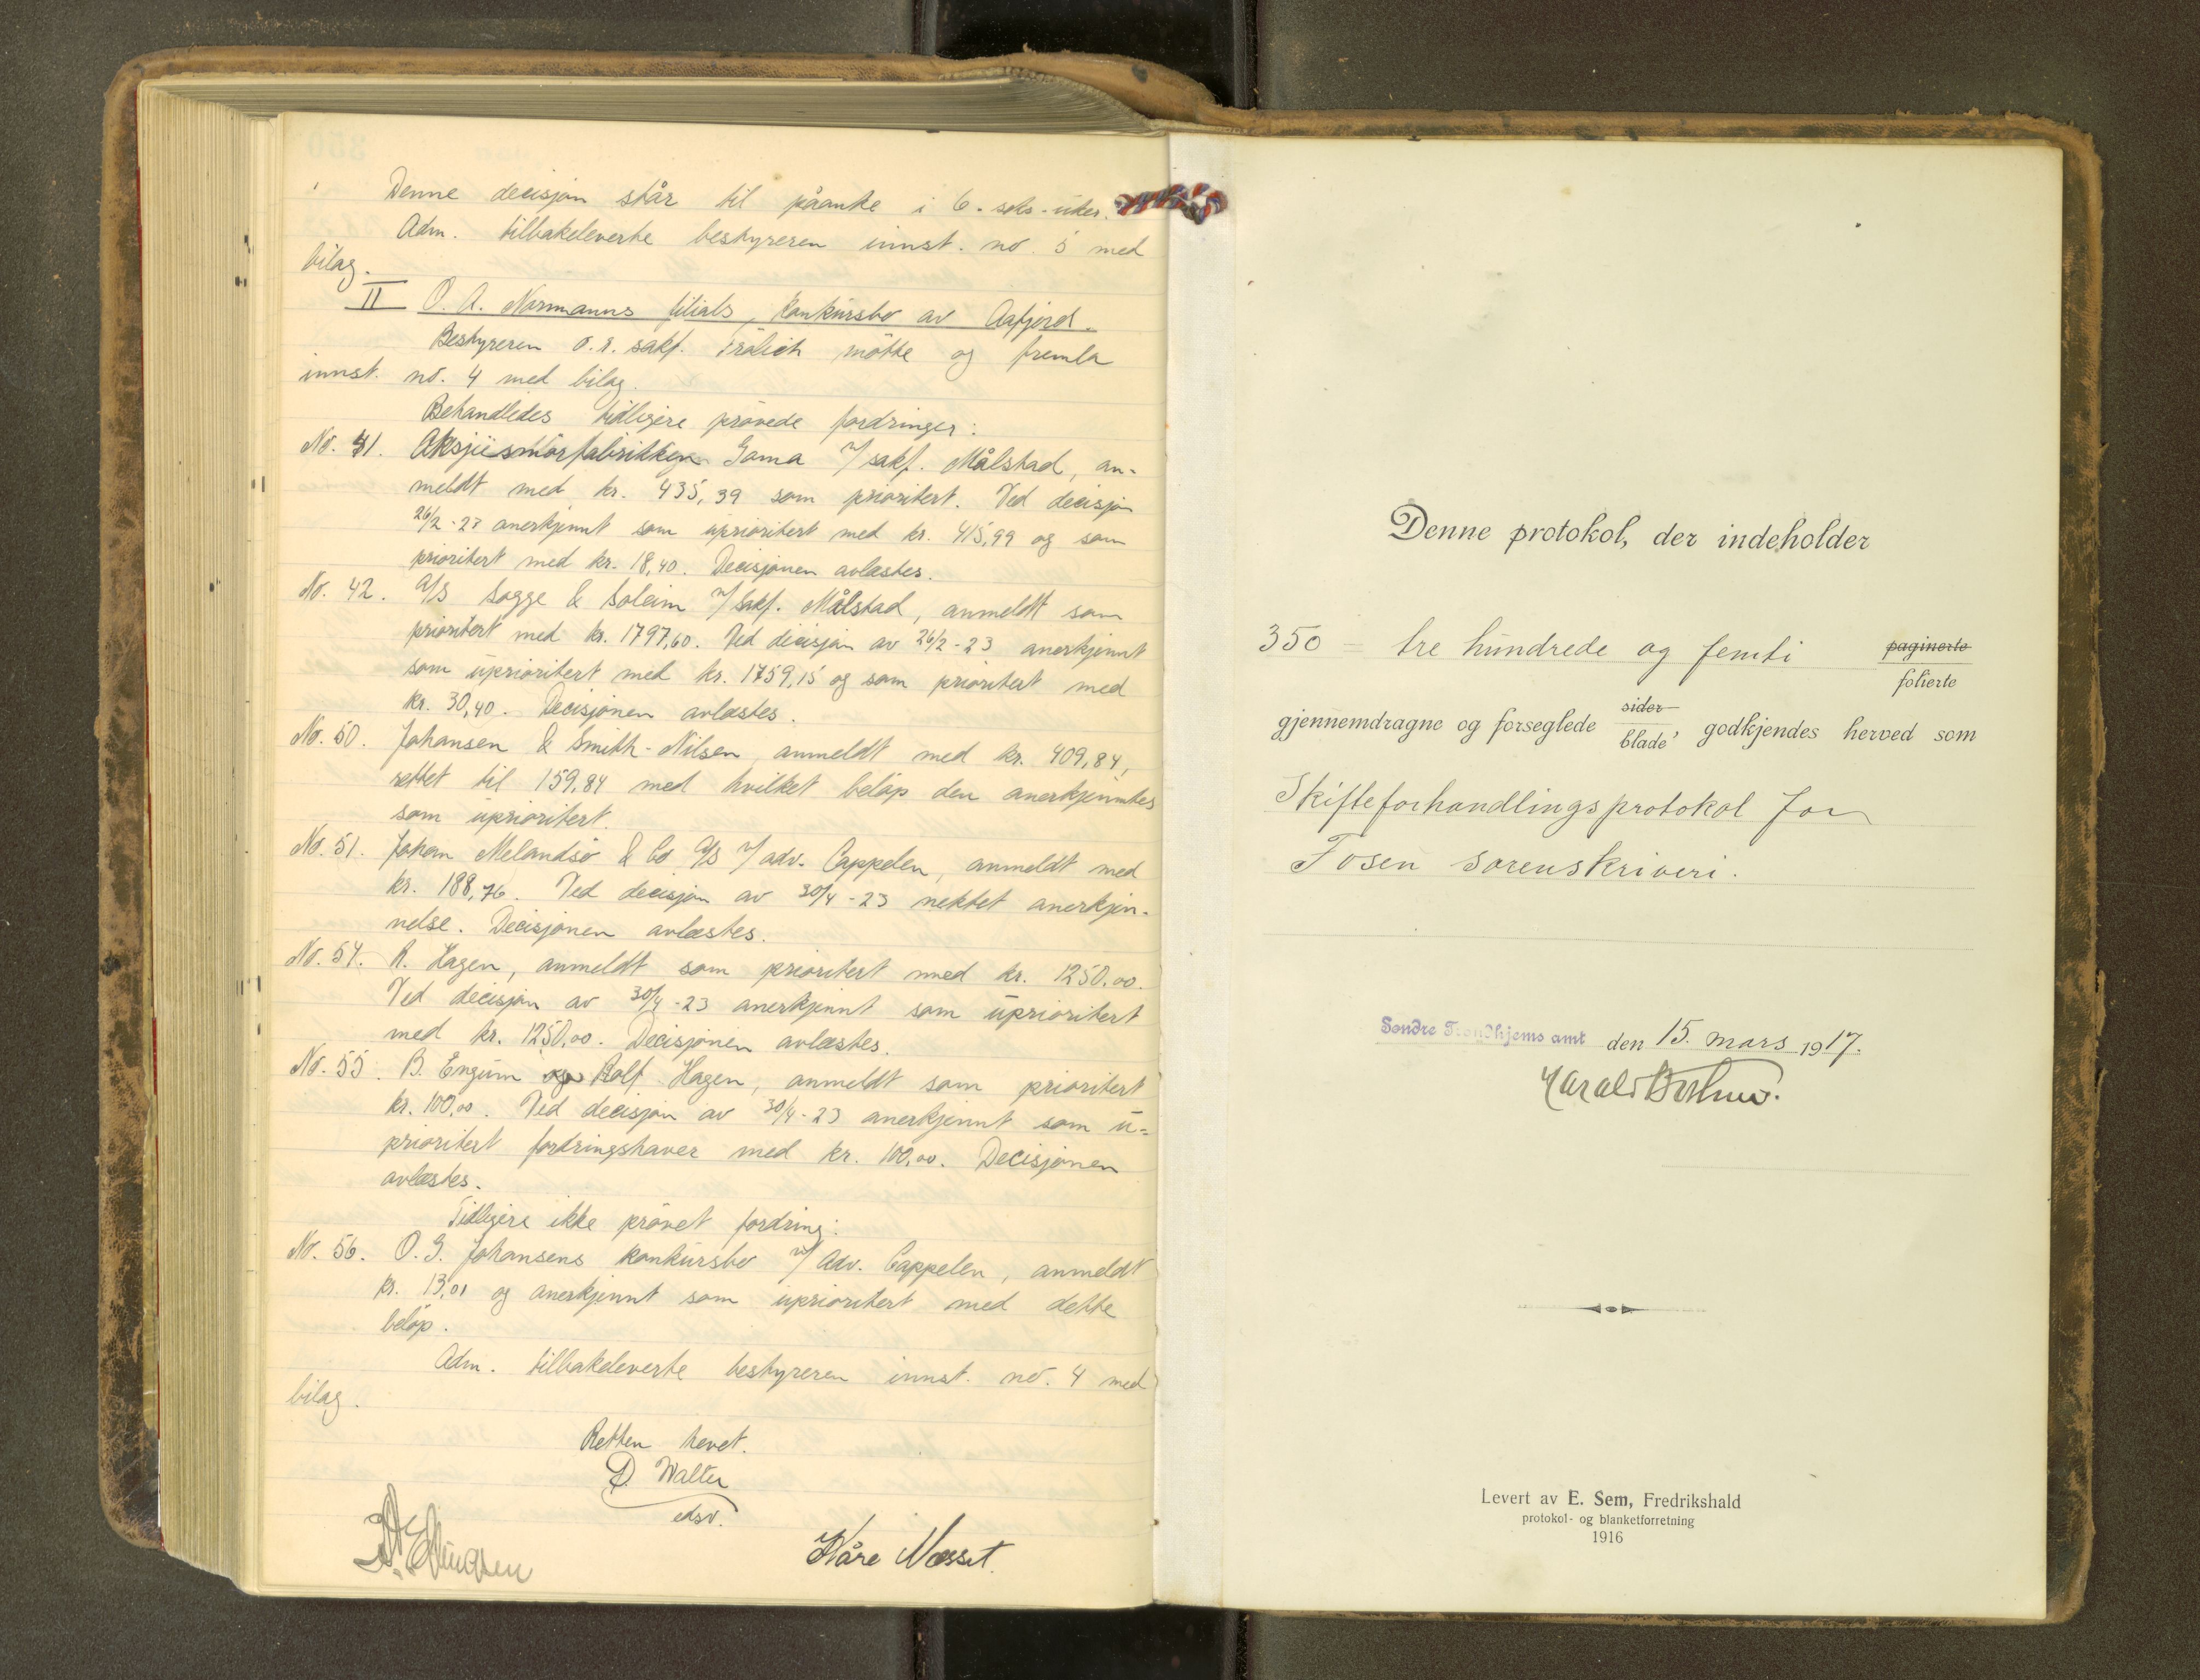 Denne decisjon står til påanke i 6 - seks - uker.
Adm. tilbakeleverte bestyreren innst. no. 5 med
bilag.
II O. A. Normanns filials, konkursbo av Aafjord.
Bestyreren o.r. sakf. Frölich mötte og fremla
innst. no. 4 med bilag.
Behandledes tidligere prövede fordringer:
No. 41. Aksjesmörfabrikken Gama v/ sakf. Målstad, an-
meldt med kr. 435,39 som prioritert. Ved decisjon
26/2-23 anerkjennt som uprioritert med kr. 415,99 og som
prioritert med kr. 18,40. Decisjonen avlæstes.
No. 42. A/S Sogge & Soleim v/ sakf. Målstad, anmeldt som
prioritert med kr. 1797,60. Ved decisjon av 26/2-23 anerkjennt
som uprioritert med kr. 1759,15 og som prioritert med
kr. 30,40. Decisjonen avlæstes.
No. 50. Johansen & Smith-Nilsen, anmeldt med kr. 409,84,
rettet til 159,84 med hvilket belöp den anerkjenntes
som uprioritert.
No. 51. Johan Melandsö & Co A/S v/ adv. Cappelen, anmeldt med
kr. 188,76. Ved decisjon av 30/4-23 nektet anerkjen-
nelse. Decisjonen avlæstes.
No. 54. R. Hagen, anmeldt som prioritert med kr. 1250,00.
Ved decisjon av 30/4-23 anerkjennt som uprioritert
med kr. 1250,00. Decisjonen avlæstes.
No. 55. B. Engum og Rolf Hagen, anmeldt som prioritert
kr. 100,00. Ved decisjon av 30/4-23 anerkjennt som u-
prioritert fordringshaver med kr. 100,00. Decisjonen
avlæstes.
Tidligere ikke prövet fordring:
No. 56. O. G. Johansens konkursbo v/ Adv. Cappelen, anmeldt
kr. 13,01 og anerkjennt som uprioritert med dette
belöp.
Adm. tilbakeleverte bestyreren innst. no. 4 med
bilag.
Retten hevet.
D. Walter
edsv.
Ellingsen
Kåre Næsset.
Denne protokol, der indeholder
350 = tre hundrede og femti paginerte
folierte
gjennemdragne og forseglede sider
blade, godkjendes herved som
Skifteforhandlingsprotokol for
Fosen sorenskriveri.
Søndre Trondhjems amt den 15. mars 1917.
Harald Bothner.
Levert av E. Sem, Fredrikshald
protokol- og blanketforretning
1916